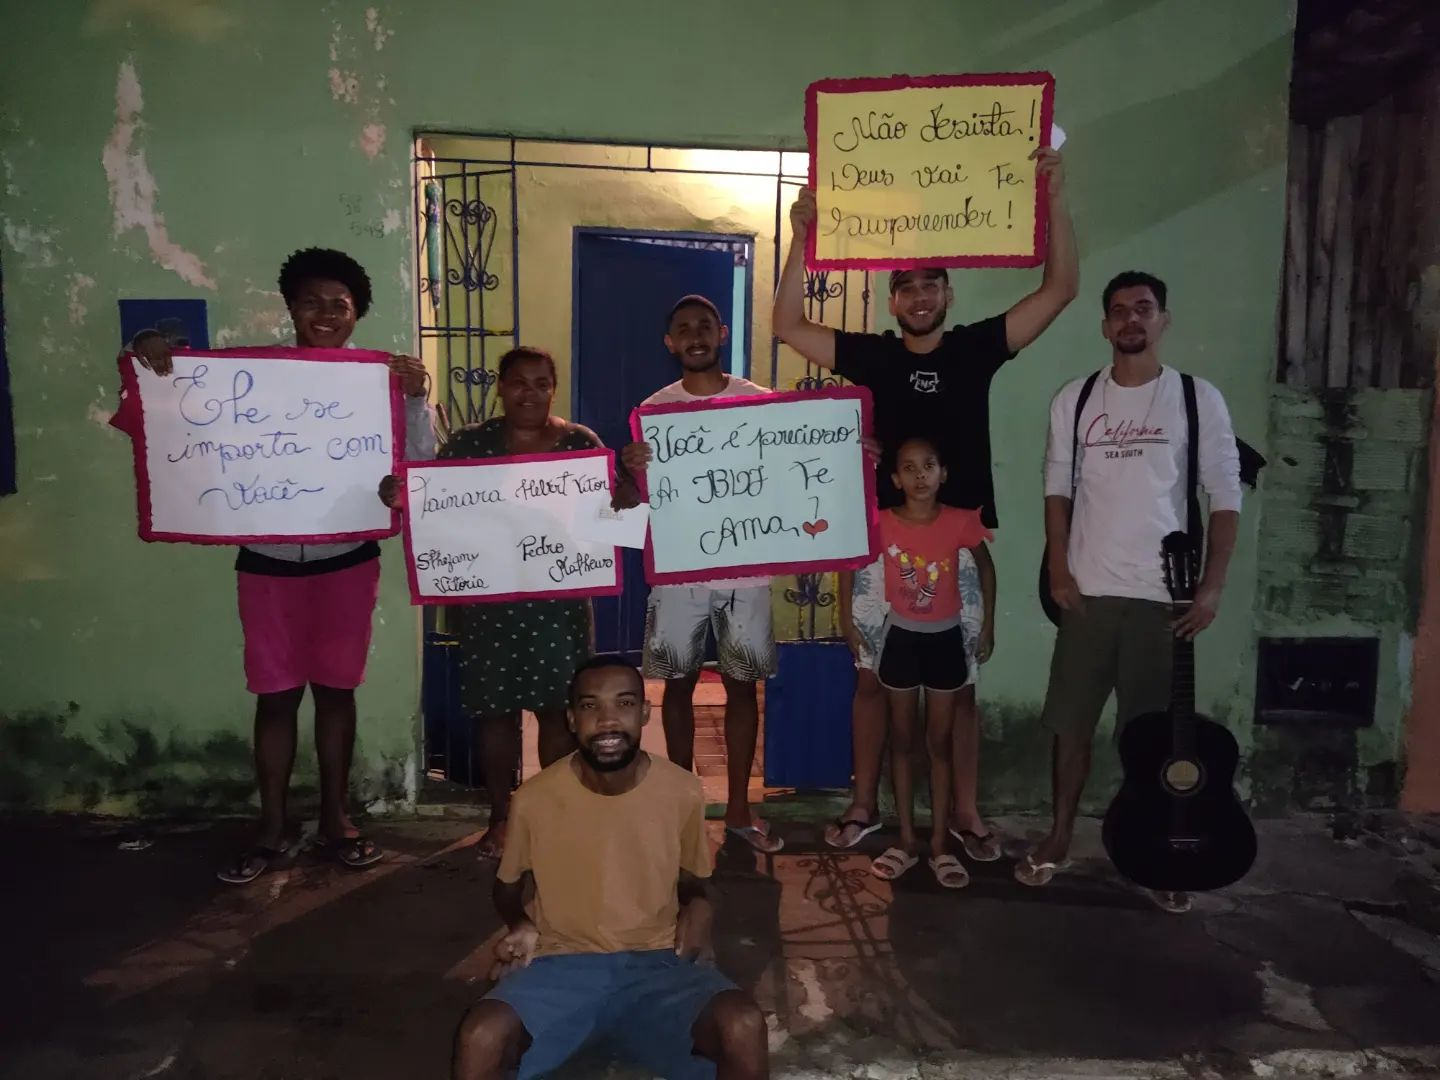 Não Desista!
Deus Vai Te
Surpreender!
Ele se
importa com
você
Tainara Helbert Vitor
Sthefany Pedro
Vitória Matheus
Você é precioso!
A IBVJ Te
Ama!
California
SEA SOUTH
593